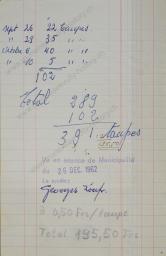 Sept 26 22 Taupes
" 29 35 " "
Octobre 6 40 " "
" 10 5 " "
102
Total 289
102
391 Taupes
à 0.50
Vu en séance de Municipalité
du 26 DEC. 1962
Le syndic:
Georges
à 0,50 Frs/taupe
Total 195,50 Frs